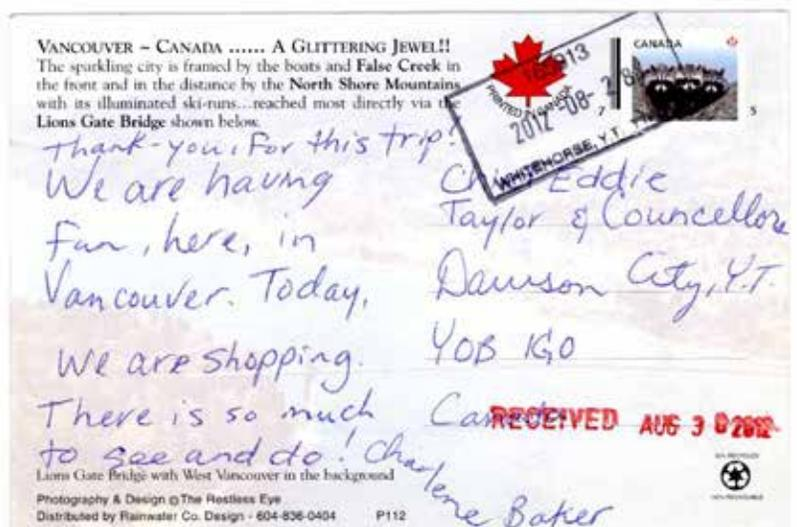 VANCOUVER ~ CANADA ...... A GLITTERING JEWEL!!
The sparkling city is framed by the boats and False Creek in
the front and in the distance by the North Shore Mountains
with its illuminated ski-runs...reached most directly via the
Lions Gate Bridge shown below.
Thank-you, For this trip!
We are having
fun, here, in
Vancouver. Today,
We are shopping.
There is so much
to see and do!
Charlene Baker
Lions Gate Bridge with West Vancouver in the background
Photography & Design © The Restless Eye
Distributed by Rainwater Co. Design - 604-836-0404 P112
PRINTED IN CANADA
2012-08-28
WHITEHORSE, Y.T.
CANADA
P
7 5
Eddie
Taylor & Councellors
Dawson City, Y.T.
Y0B 1G0
Canada
RECEIVED AUG 30 2012